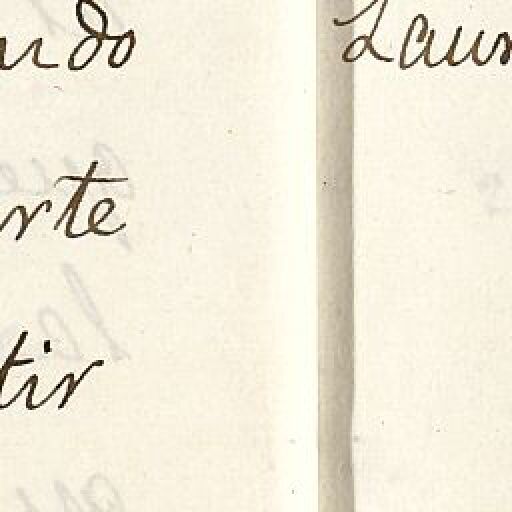 udo
rte
tir
Laur